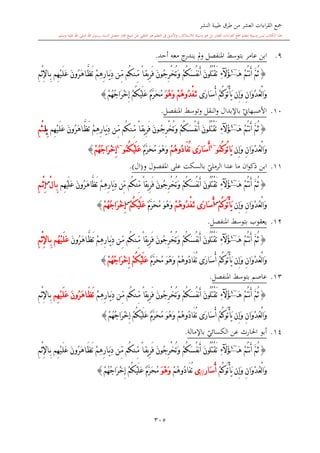 جمع القراءات العشر من طرق طيبة النشر
٩. ابن عامر بتوسط المنفصل ولم يندرج معه أحد.
﴿ ثُمَّ أَنتُمْ هَـٰٓؤُلَآءِ تَقْتُلُونَ أَنفُسَكُمْ وَتُخْرِجُونَ فَرِيقاً مِنكُم مِّن دِيَارِهِمْ تَظَّاهَرُونَ عَلَيْهِم بِالإِثْمِ
وَالْعُدْوَانِ وَإِن يَأْتُوكُمْ أُسَارَى تَفْدُوهُمْ وَهُوَ مُحَرَّمٌ عَلَيْكُمْ إِخْرَاجُهُمْ ﴾
١٠. الأصبهاني بالإبدال والنقل وتوسط المنفصل.
﴿ ثُمَّ أَنتُمْ هَـٰٓؤُلَآءِ تَقْتُلُونَ أَنفُسَكُمْ وَتُخْرِجُونَ فَرِيقاً مِنكُم مِّن دِيَارِهِمْ تَظَّاهَرُونَ عَلَيْهِم
وَالْعُدْوَانِ وَإِن يَاتُوكُمُ أُسَارَى تُفَادُوهُمْ وَهُوَ مُحَرَّمٌ عَلَيْكُمُ إِخْرَاجُهُمْ ﴾
١١. ابن ذكوان ما عدا الرمليّ بالسكت على المفصول و(ال).
﴿ ثُمَّ أَنتُمْ هَـٰٓؤُلَآءِ تَقْتُلُونَ أَنفُسَكُمْ وَتُخْرِجُونَ فَرِيقاً مِنكُم مِّن دِيَارِهِمْ تَظَّاهَرُونَ عَلَيْهِم بِالْإِثْمِ
وَالْعُدْوَانِ وَإِن يَأْتُوكُمْ أُسَارَى تَفْدُوهُمْ وَهُوَ مُحَرَّمٌ عَلَيْكُمْ إِخْرَاجُهُمْ ﴾
١٢. يعقوب بتوسط المنفصل.
﴿ ثُمَّ أَنتُمْ هَـٰٓؤُلَآءِ تَقْتُلُونَ أَنفُسَكُمْ وَتُخْرِجُونَ فَرِيقاً مِنكُم مِّن دِيَارِهِمْ تَظَّاهَرُونَ عَلَيْهُم بِالإِثْمِ
وَالْعُدْوَانِ وَإِن يَأْتُوكُمْ أُسَارَى تُفَادُوهُمْ وَهُوَ مُحَرَّمٌ عَلَيْكُمْ إِخْرَاجُهُمْ ﴾
١٣. عاصم بتوسط المنفصل.
﴿ ثُمَّ أَنتُمْ هَـٰٓؤُلَآءِ تَقْتُلُونَ أَنفُسَكُمْ وَتُخْرِجُونَ فَرِيقاً مِنكُم مِّن دِيَارِهِمْ تَظَاهَرُونَ عَلَيْهِم بِالإِثْمِ
وَالْعُدْوَانِ وَإِن يَأْتُوكُمْ أُسَارَى تُفَادُوهُمْ وَهُوَ مُحَرَّمٌ عَلَيْكُمْ إِخْرَاجُهُمْ ﴾
١٤. أبو الحارث عن الكسائيّ بالإمالة.
﴿ ثُمَّ أَنتُمْ هَـٰٓؤُلَآءِ تَقْتُلُونَ أَنفُسَكُمْ وَتُخْرِجُونَ فَرِيقاً مِنكُم مِّن دِيَارِهِمْ تَظَاهَرُونَ عَلَيْهِم بِالإِثْمِ
وَالْعُدْوَانِ وَإِن يَأْتُوكُمْ تُفَادُوهُمْ وَهْوَ مُحَرَّمٌ عَلَيْكُمْ إِخْرَاجُهُمْ ﴾
٣٠٥